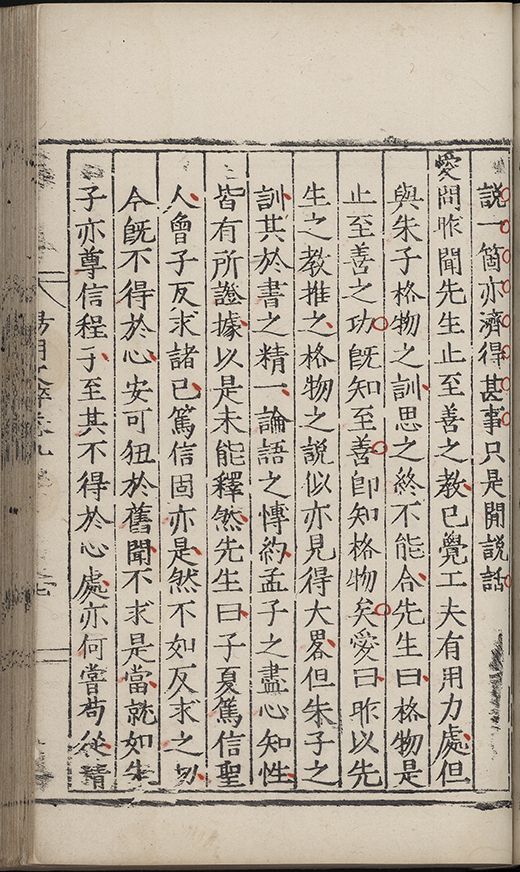 說一箇亦濟得甚事只是閒說話
愛問昨聞先生止至善之教已覺工夫有用力處但
與朱子格物之訓思之終不能合先生曰格物是
止至善之功旣知至善卽知格物矣愛曰昨以先
生之教推之格物之說似亦見得大畧但朱子之
訓其於書之精一論語之慱約孟子之盡心知性
皆有所證據以是未能釋然先生曰子夏篤信聖
人曾子反求諸已篤信固亦是然不如反求之切
今旣不得於心安可狃於舊聞不求是當就如朱
子亦尊信程子至其不得於心處亦何嘗苟從精